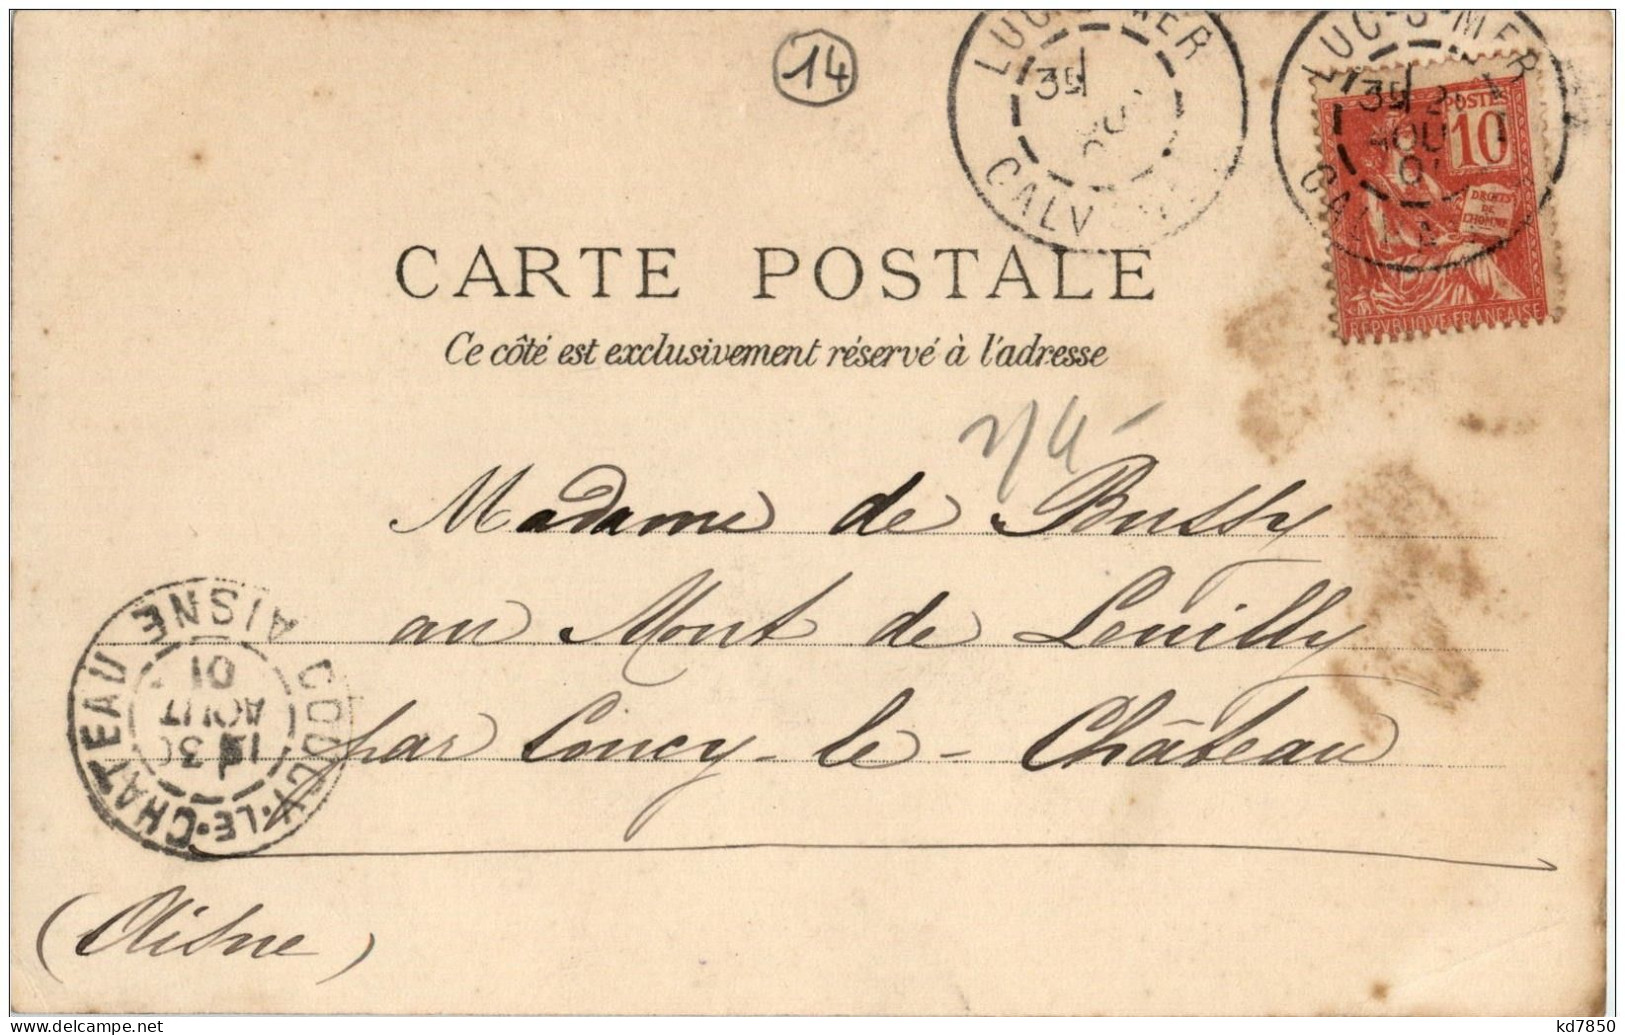 14
LUC-S-MER
35
CALV
LUC-S-MER
35 2
AOU
01
CALVA
POSTES
10
DROITS
DE
L'HOMME
REPVBLIQVE FRANÇAISE
CARTE POSTALE
Ce côté est exclusivement réservé à l'adresse
Madame de Bussy
au Mont de Leuilly
par Coucy-le-Château
(Aisne)
COUCY-LE-CHATEAU AISNE
30
AOUT
01
kd7850